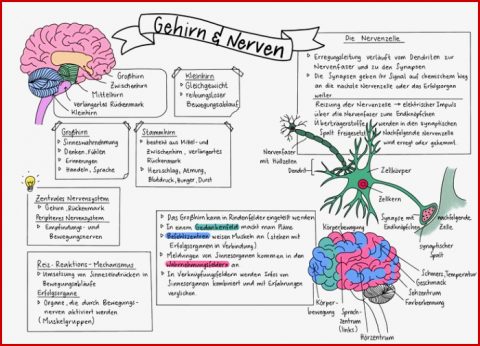 Gehirn & Nerven
Großhirn
Zwischenhirn
Mittelhirn
verlängertes Rückenmark
Kleinhirn
Kleinhirn
Gleichgewicht
reibungsloser
Bewegungsablauf
Die Nervenzelle
Erregungsleitung verläuft vom Dendriten zur
Nervenfaser und zu den Synapsen
Die Synapsen geben ihr Signal auf chemischem Weg
an die nächste Nervenzelle oder das Erfolgsorgan
weiter
Reizung der Nervenzelle → elektrischer Impuls
über die Nervenfaser zum Endknöpfchen
Überträgerstoffe werden in den synaptischen
Spalt freigesetzt
Nachfolgende Nervenzelle
wird erregt oder gehemmt.
Großhirn
Sinneswahrnehmung
Denken, Fühlen
Erinnerungen
Handeln, Sprache
Stammhirn
besteht aus Mittel- und
Zwischenhirn, verlängertes
Rückenmark
Herzschlag, Atmung,
Blutdruck, Hunger, Durst
Nervenfaser
mit Hüllzellen
Dendrit
Zellkörper
Zellkern
Synapse mit
Endknöpfchen
nachfolgende
Zelle
synaptischer
Spalt
Zentrales Nervensystem
Gehirn, Rückenmark
Peripheres Nervensystem
Empfindungs- und
Bewegungsnerven
Reiz-Reaktions-Mechanismus
Umsetzung von Sinneseindrücken in
Bewegungsabläufe
Erfolgsorgane
Organe, die durch Bewegungs-
nerven aktiviert werden
(Muskelgruppen)
Das Großhirn kann in Rindenfelder eingeteilt werden
In einem Gedankenfeld macht man Pläne
Befehlszentren weisen Muskeln an (stehen mit
Erfolgsorganen in Verbindung)
Meldungen von Sinnesorganen kommen in den
Wahrnehmungsfeldern an
In Verknüpfungsfeldern werden Infos von
Sinnesorganen kombiniert und mit Erfahrungen
verglichen
Körperbewegung
Schmerz, Temperatur
Geschmack
Sehzentrum
Farberkennung
Körper-
bewegung
Sprach-
zentrum
(links)
Hörzentrum